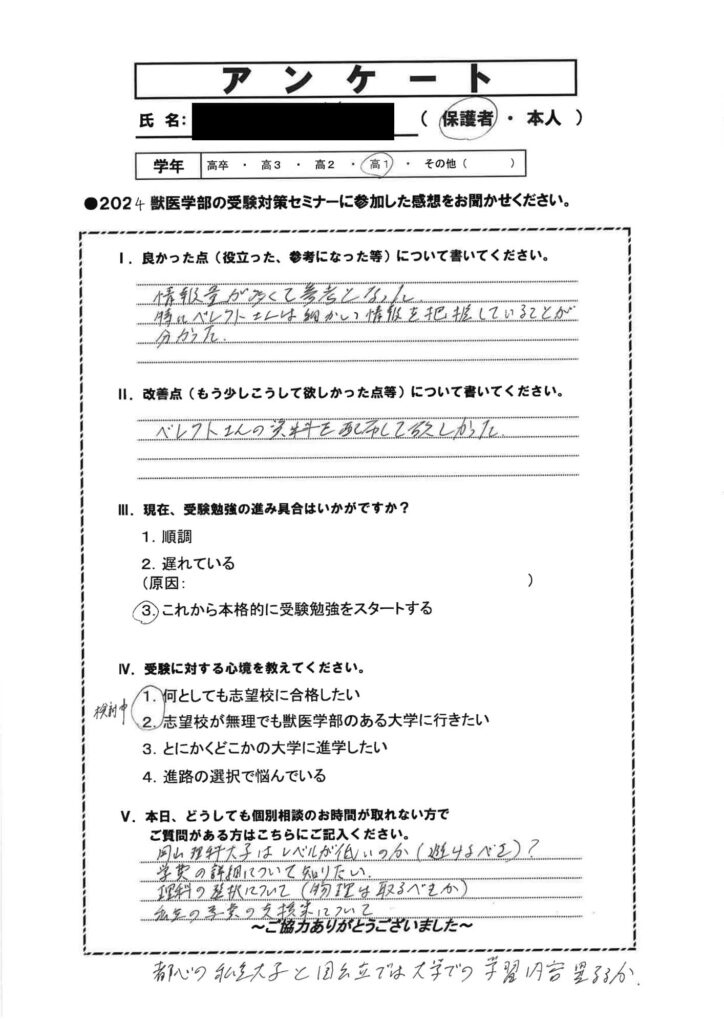 アンケート
氏 名: （ 保護者 ・ 本人 ）
学年 高卒 ・ 高3 ・ 高2 ・ 高1 ・ その他（ ）
●2024 獣医学部の受験対策セミナーに参加した感想をお聞かせください。
Ⅰ．良かった点（役立った、参考になった等）について書いてください。
情報量が多くて参考となった。
特にベレクトさんは細かい情報を把握していることが
分かった。
Ⅱ．改善点（もう少しこうして欲しかった点等）について書いてください。
ベレクトさんの資料を配布して欲しかった。
Ⅲ．現在、受験勉強の進み具合はいかがですか？
1．順調
2．遅れている
（原因： ）
3．これから本格的に受験勉強をスタートする
Ⅳ．受験に対する心境を教えてください。
1．何としても志望校に合格したい
検討中
2．志望校が無理でも獣医学部のある大学に行きたい
3．とにかくどこかの大学に進学したい
4．進路の選択で悩んでいる
Ⅴ．本日、どうしても個別相談のお時間が取れない方で
ご質問がある方はこちらにご記入ください。
岡山理科大学はレベルが低いのか（避けるべき）？
学費の詳細について知りたい
理科の選択について（物理は取るべきか）
私立の学費の支援策について
～ご協力ありがとうございました～
都心の私立大学と国公立では大学での学習内容異るか.